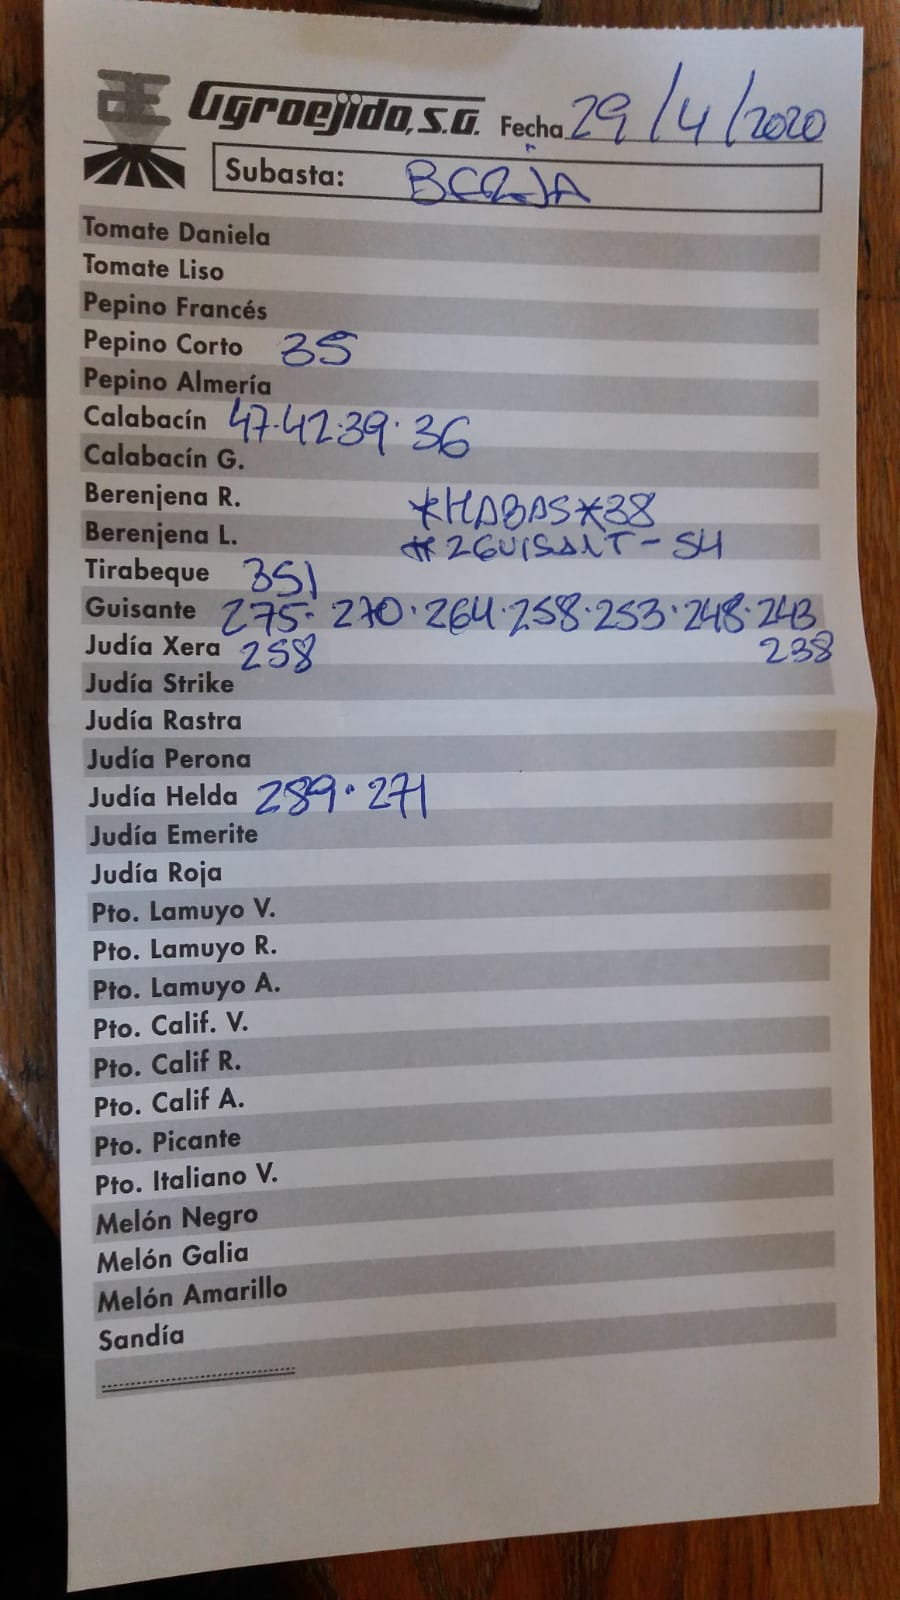 Agroejido, S.A. Fecha 29/4/2020
Subasta: BERJA
Tomate Daniela
Tomate Liso
Pepino Francés
Pepino Corto 35
Pepino Almería
Calabacín 47·42·39·36
Calabacín G.
Berenjena R. *HABAS*38
Berenjena L. *2GUISANT-54
Tirabeque 351
Guisante 275·270·264·258·253·248·243
Judía Xera 258 238
Judía Strike
Judía Rastra
Judía Perona
Judía Helda 289·271
Judía Emerite
Judía Roja
Pto. Lamuyo V.
Pto. Lamuyo R.
Pto. Lamuyo A.
Pto. Calif. V.
Pto. Calif R.
Pto. Calif A.
Pto. Picante
Pto. Italiano V.
Melón Negro
Melón Galia
Melón Amarillo
Sandía